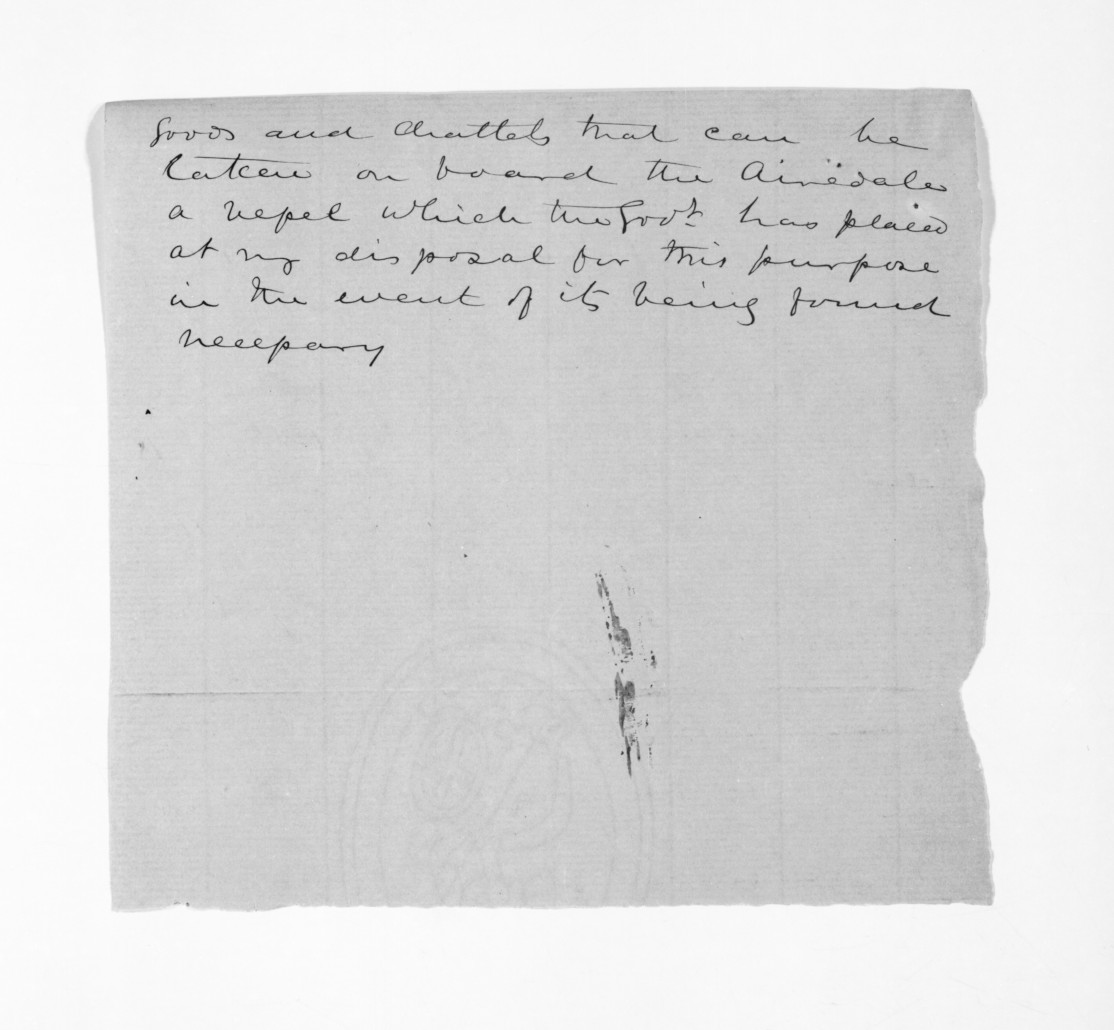 goods and chattels that can be
taken on board the Airedale
a vessel which the Govt. has placed
at my disposal for this purpose
in the event of its being found
necessary